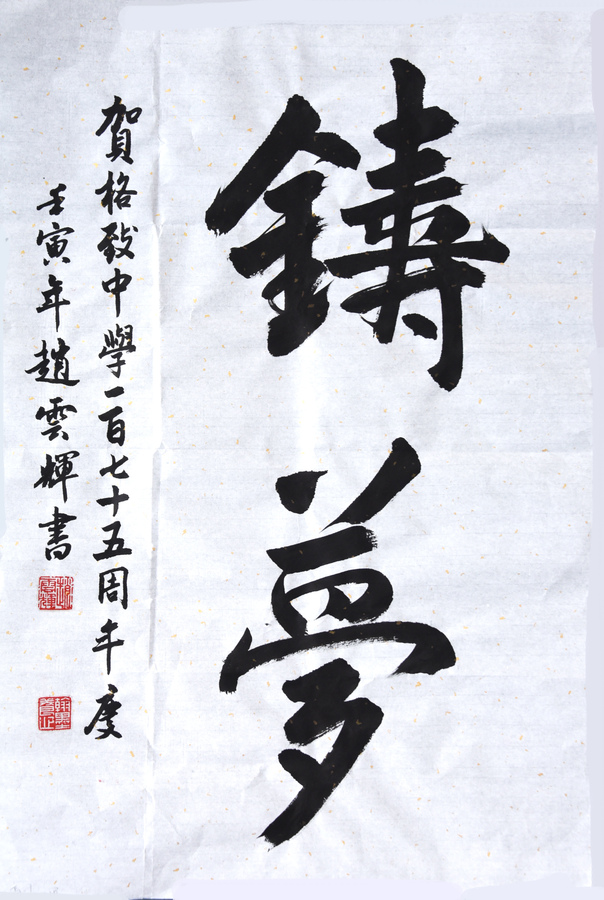 鑄夢
賀格致中學一百七十五周年慶
壬寅年趙雲輝書